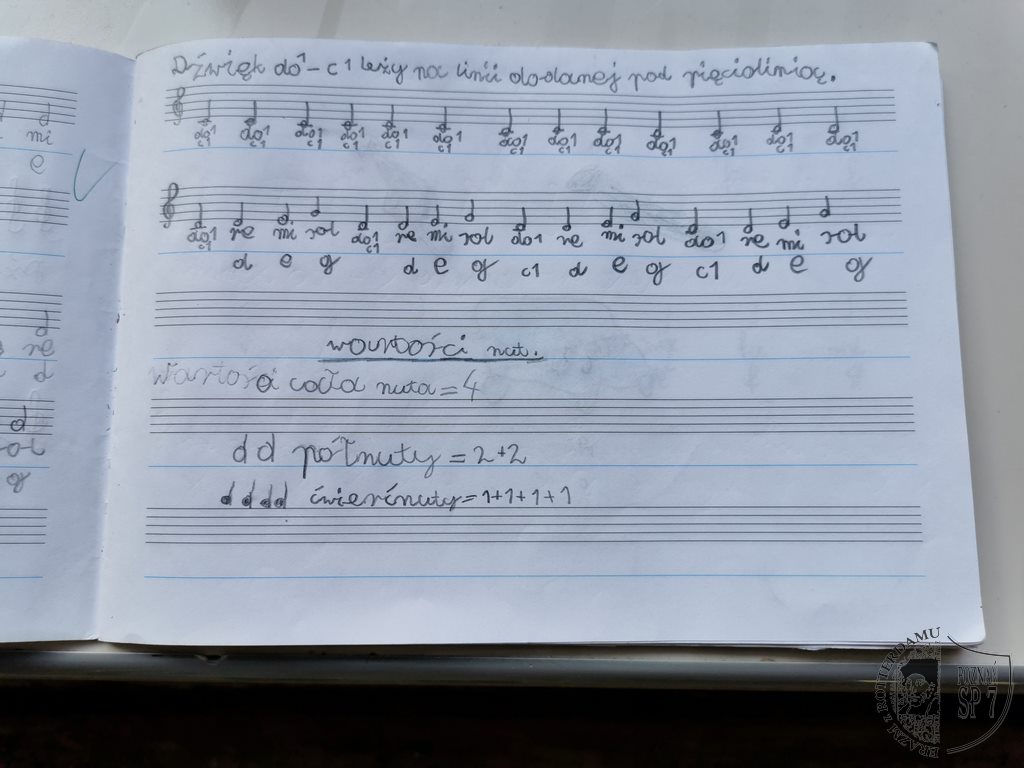 mi
e
re
d
sol
g
Dźwięk do1 – c1 leży na linii do-danej pod pięciolinią.
do1 do1 do1 do1 do1 do1 do1 do1 do1 do1 do1 do1 do1
c1 c1 c1 c1 c1 c1 c1 c1 c1 c1 c1 c1 c1
do1 re mi sol do1 re mi sol do1 re mi sol do1 re mi sol
c1 d e g c1 d e g c1 d e g c1 d e g
wartości nut.
Wartość cała nuta = 4
półnuty = 2+2
ćwierćnuty = 1+1+1+1
ERAZM Z ROTTERDAMU
POZNAŃ
SP 7